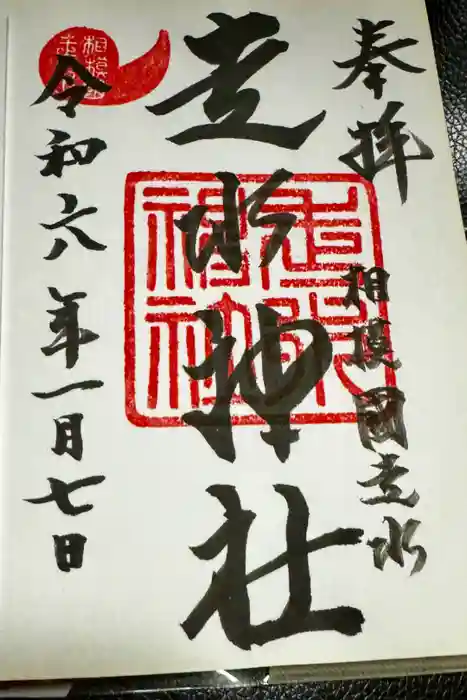 奉拝
相模國走水
走水神社
走水神社
令和六年一月七日
相模